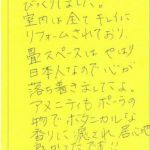 びっくりしました。
室内は全てキレイに
リフォームされており
畳スペースは やはり
日本人なので心が
落ち着きましてよ。
アメニティも ポーラの
物で ボタニカルな
香りに 癒され 居心地